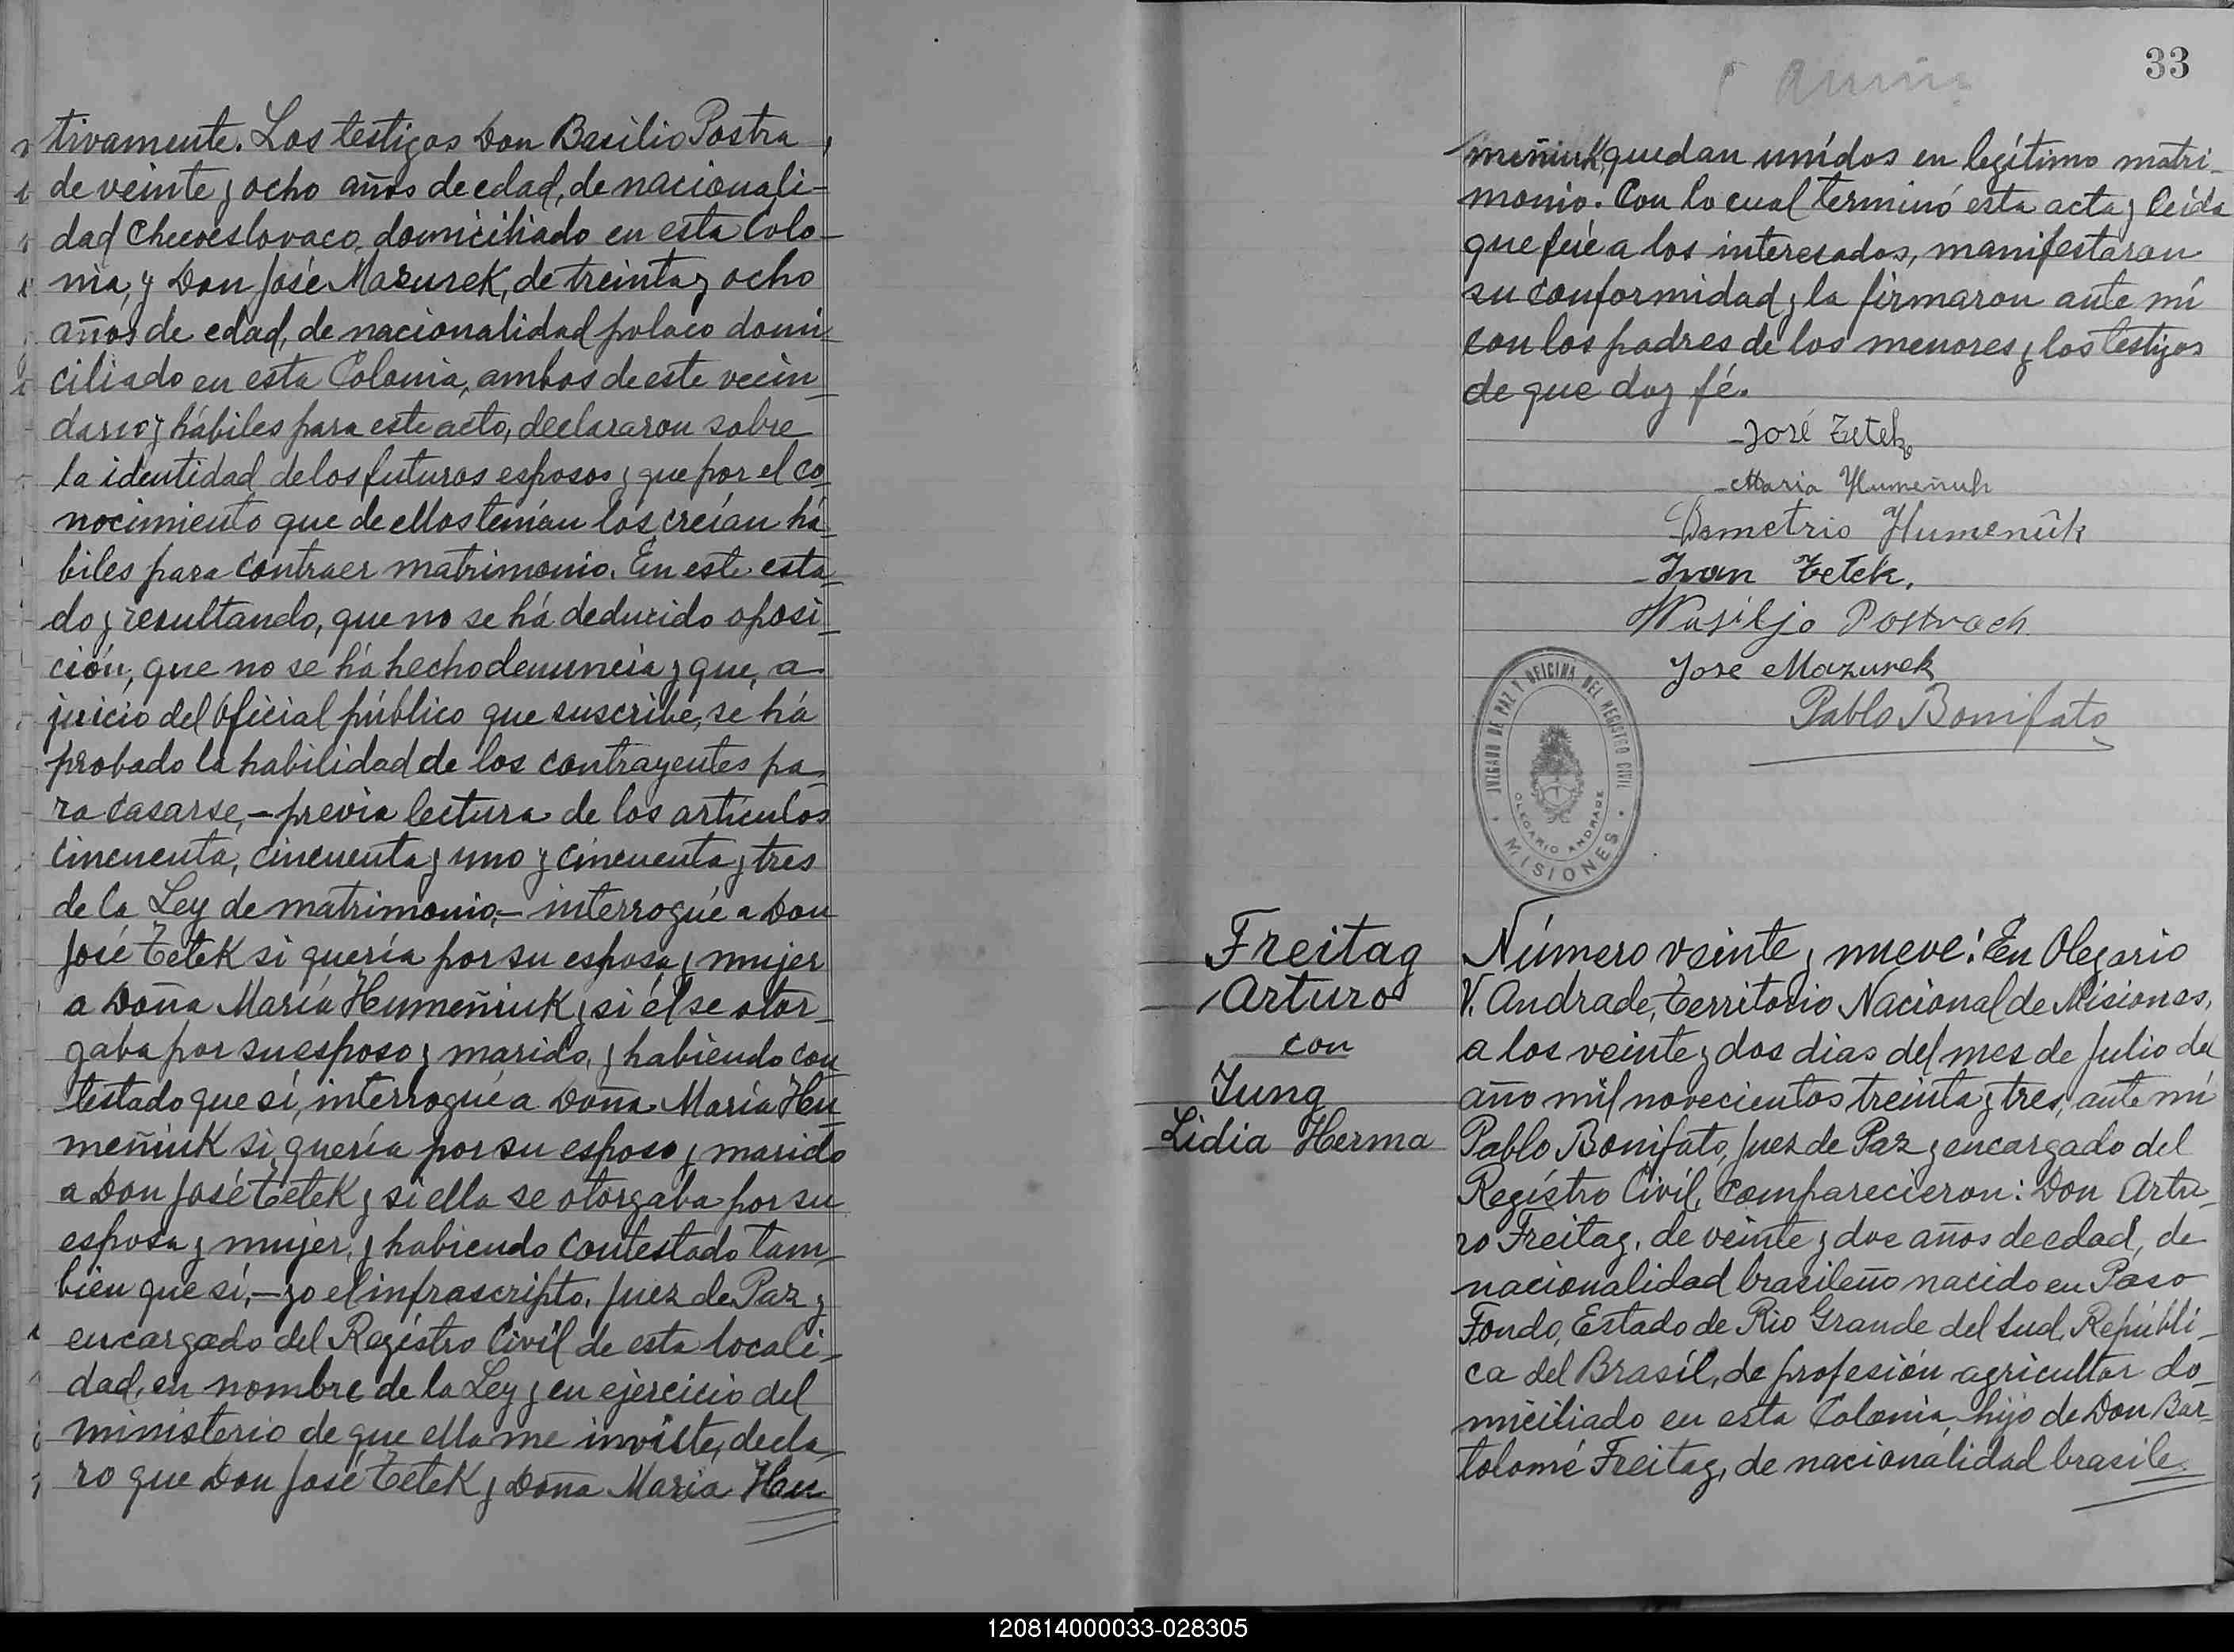 tivamente. Los testigos Don Basilio Postra
de veinte y ocho años de edad, de nacionali-
dad Checoeslovaco, domiciliado en esta Colo-
nia, y Don José Mazurek, de treinta y ocho
años de edad, de nacionalidad polaco domi-
ciliado en esta Colonia, ambos de este vecin-
dario y hábiles para este acto, declararon sobre
la identidad de los futuros esposos y que por el co-
nocimiento que de ellos tenían los creían há-
biles para contraer matrimonio. En este esta-
do y resultando, que no se há deducido oposi-
ción, que no se há hecho denuncia y que, a
juicio del oficial público que suscribe, se há
probado la habilidad de los contrayentes pa-
ra casarse,- previa lectura de los artículos
cincuenta, cincuenta y uno y cincuenta y tres
de la Ley de matrimonio,- interrogué a Don
José Tetek si quería por su esposa y mujer
a Doña María Humeñiuk y si él se otor-
gaba por su esposo y marido, y habiendo con-
testado que sí, interrogué a Doña María Hu-
meñiuk si quería por su esposo y marido
a Don José Tetek y si ella se otorgaba por su
esposa y mujer, y habiendo contestado tam-
bien que sí,- yo el infrascripto, Juez de Paz y
encargado del Regístro Civíl de esta locali-
dad, en nombre de la Ley y en ejercicio del
ministerio de que ella me inviste, decla-
ro que Don José Tetek y Doña María Hu-
33
meñiuk, quedan unídos en legítimo matri-
monio. Con lo cual terminó esta acta y leída
que fué a los interesados, manifestaron
su conformidad y la firmaron ante mí
con los padres de los menores y los testigos
de que doy fé.
José Tetek
Maria Humeñuk
Demetrio Humenûk
Ivan Tetek.
Wasiljo Postrach
Jose Mazurek
Pablo Bonifato
JUZGADO DE PAZ Y OFICINA DEL REGISTRO CIVIL
OLEGARIO ANDRADE
MISIONES
Freitag
Arturo
con
Jung
Lidia Herma
Número veinte y nueve: En Olegario
V. Andrade, Territorio Nacional de Misiones,
a los veinte y dos dias del mes de Julio del
año mil novecientos treinta y tres, ante mí
Pablo Bonifato, Juez de Paz y encargado del
Regístro Civíl, comparecieron: Don Artu-
ro Freitag, de veinte y dos años de edad, de
nacionalidad brasileño nacido en Paso
Fondo, Estado de Rio Grande del Sud, Repúbli-
ca del Brasíl, de profesión agricultor do-
miciliado en esta Colonia, hijo de Don Bar-
tolomé Freitag, de nacionalidad brasile-
120814000033-028305